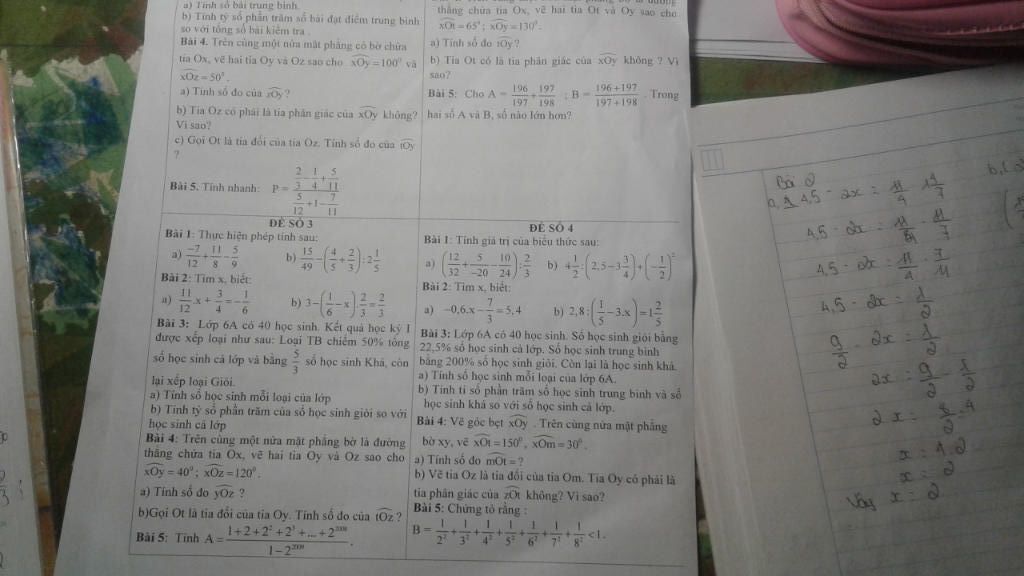 a) Tính số bài trung bình.
b) Tính tỷ số phần trăm số bài đạt điểm trung bình
so với tổng số bài kiểm tra .
Bài 4. Trên cùng một nửa mặt phẳng có bờ chứa
tia Ox, vẽ hai tia Oy và Oz sao cho xOy = 100⁰ và
xOz = 50⁰ .
a) Tính số đo của zOy ?
b) Tia Oz có phải là tia phân giác của xOy không?
Vì sao?
c) Gọi Ot là tia đối của tia Oz. Tính số đo của tOy
?
Bài 5. Tính nhanh: P = (2/3 - 1/4 + 5/11)/(5/12 + 1 - 7/11)
thẳng chứa tia Ox, vẽ hai tia Ot và Oy sao cho
xOt = 65⁰ ; xOy = 130⁰ .
a) Tính số đo tOy ?
b) Tia Ot có là tia phân giác của xOy không ? Vì
sao?
Bài 5: Cho A = 196/197 + 197/198 ; B = (196+197)/(197+198) . Trong
hai số A và B, số nào lớn hơn?
ĐỀ SỐ 3
Bài 1: Thực hiện phép tính sau:
a) -7/12 + 11/8 - 5/9 b) 15/49 - (4/5 + 2/3) : 2 1/5
Bài 2: Tìm x, biết:
a) 11/12 .x + 3/4 = - 1/6 b) 3 - (1/6 - x) . 2/3 = 2/3
Bài 3: Lớp 6A có 40 học sinh. Kết quả học kỳ I
được xếp loại như sau: Loại TB chiếm 50% tổng
số học sinh cả lớp và bằng 5/3 số học sinh Khá, còn
lại xếp loại Giỏi.
a) Tính số học sinh mỗi loại của lớp
b) Tính tỷ số phần trăm của số học sinh giỏi so với
học sinh cả lớp
Bài 4: Trên cùng một nửa mặt phẳng bờ là đường
thẳng chứa tia Ox, vẽ hai tia Oy và Oz sao cho
xOy = 40⁰ ; xOz = 120⁰ .
a) Tính số đo yOz ?
b)Gọi Ot là tia đối của tia Oy. Tính số đo của tOz ?
Bài 5: Tính A = (1+2+2²+2³+...+2²⁰⁰⁸)/(1-2²⁰⁰⁹) .
ĐỀ SỐ 4
Bài 1: Tính giá trị của biểu thức sau:
a) (12/32 + 5/-20 - 10/24) : 2/3 b) 4 1/2 : (2,5 - 3 3/4) + (-1/2)²
Bài 2: Tìm x, biết:
a) -0,6.x - 7/3 = 5,4 b) 2,8 : (1/5 - 3.x) = 1 2/5
Bài 3: Lớp 6A có 40 học sinh. Số học sinh giỏi bằng
22,5% số học sinh cả lớp. Số học sinh trung bình
bằng 200% số học sinh giỏi. Còn lại là học sinh khá.
a) Tính số học sinh mỗi loại của lớp 6A.
b) Tính tỉ số phần trăm số học sinh trung bình và số
học sinh khá so với số học sinh cả lớp.
Bài 4: Vẽ góc bẹt xOy . Trên cùng nửa mặt phẳng
bờ xy, vẽ xOt = 150⁰ , xOm = 30⁰ .
a) Tính số đo mOt = ?
b) Vẽ tia Oz là tia đối của tia Om. Tia Oy có phải là
tia phân giác của zOt không? Vì sao?
Bài 5: Chứng tỏ rằng :
B = 1/2² + 1/3² + 1/4² + 1/5² + 1/6² + 1/7² + 1/8² < 1 .
Bài 2
4,5 - 2x = 1/2
9/2 - 2x = 1/2
2x = 9/2 - 1/2
x = 4:2
x = 2
Vậy x = 2